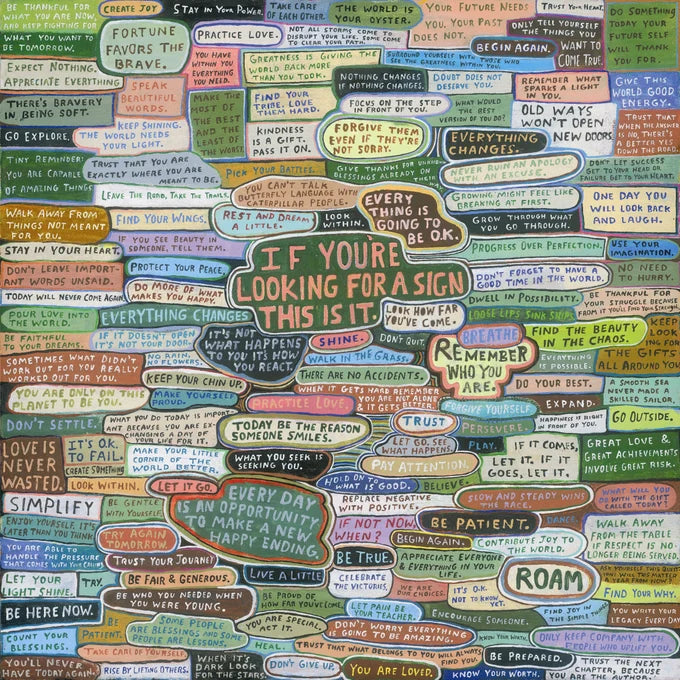 BE THANKFUL FOR
WHAT YOU ARE NOW,
AND KEEP FIGHTING FOR
WHAT YOU WANT TO
BE TOMORROW.
CREATE JOY
STAY IN YOUR POWER.
TAKE CARE
OF EACH OTHER.
THE WORLD IS
YOUR OYSTER.
YOUR FUTURE NEEDS
YOU. YOUR PAST
DOES NOT.
TRUST YOUR HEART.
DO SOMETHING
TODAY YOUR
FUTURE SELF
WILL THANK
YOU FOR.
FORTUNE
FAVORS THE
BRAVE.
PRACTICE LOVE.
NOT ALL STORMS COME TO
DISRUPT YOUR LIFE. SOME COME
TO CLEAR YOUR PATH.
ONLY TELL YOURSELF
THE THINGS YOU
WANT TO
COME TRUE.
BEGIN AGAIN.
EXPECT NOTHING.
APPRECIATE EVERYTHING
YOU HAVE
WITHIN YOU
EVERYTHING
YOU NEED.
GREATNESS IS GIVING THE
WORLD BACK MORE
THAN YOU TOOK.
SURROUND YOURSELF WITH THOSE WHO
SEE THE GREATNESS WITHIN YOU.
SPEAK
BEAUTIFUL
WORDS.
NOTHING CHANGES
IF NOTHING CHANGES.
DOUBT DOES NOT
DESERVE YOU.
REMEMBER WHAT
SPARKS A LIGHT
IN YOU.
GIVE THIS
WORLD GOOD
ENERGY.
THERE'S BRAVERY
IN BEING SOFT.
MAKE THE
MOST OF
THE BEST
AND THE
LEAST OF
THE WORST.
FIND YOUR
TRIBE. LOVE
THEM HARD.
FOCUS ON THE STEP
IN FRONT OF YOU.
WHAT WOULD
THE BEST
VERSION OF YOU DO?
OLD WAYS
WON'T OPEN
NEW DOORS.
TRUST THAT
WHEN THE ANSWER
IS NO, THERE'S
A BETTER YES
DOWN THE ROAD.
GO EXPLORE.
KEEP SHINING.
THE WORLD NEEDS
YOUR LIGHT.
KINDNESS
IS A GIFT.
PASS IT ON.
FORGIVE THEM
EVEN IF THEY'RE
NOT SORRY.
EVERYTHING
CHANGES.
TINY REMINDER:
YOU ARE CAPABLE
OF AMAZING THINGS
TRUST THAT YOU ARE
EXACTLY WHERE YOU ARE
MEANT TO BE.
PICK YOUR BATTLES.
GIVE THANKS FOR
BLESSINGS ALREADY ON
NEVER RUIN AN APOLOGY
WITH AN EXCUSE.
DON'T LET SUCCESS
GET TO YOUR HEAD OR
FAILURE GET TO YOUR HEART.
LEAVE THE ROAD, TAKE THE TRAILS.
YOU CAN'T TALK
BUTTERFLY LANGUAGE WITH
CATERPILLAR PEOPLE.
EVERY
THING IS
GOING TO
BE O.K.
GROWING MIGHT FEEL LIKE
BREAKING AT FIRST.
ONE DAY YOU
WILL LOOK BACK
AND LAUGH.
WALK AWAY FROM
THINGS NOT MEANT
FOR YOU.
FIND YOUR WINGS.
REST AND DREAM
A LITTLE.
LOOK
WITHIN.
GROW THROUGH WHAT
YOU GO THROUGH.
STAY IN YOUR HEART
IF YOU SEE BEAUTY IN
SOMEONE, TELL THEM.
IF YOU'RE
LOOKING FOR A SIGN
THIS IS IT.
PROGRESS OVER PERFECTION.
USE YOUR
IMAGINATION.
DON'T LEAVE IMPORT-
ANT WORDS UNSAID.
PROTECT YOUR PEACE.
DON'T FORGET TO HAVE A
GOOD TIME IN THE WORLD.
NO NEED
TO HURRY.
TODAY WILL NEVER COME AGAIN.
DO MORE OF WHAT
MAKES YOU HAPPY.
DWELL IN POSSIBILITY.
BE THANKFUL FOR
YOUR STRUGGLE BECAUSE
FROM IT YOU'LL FIND YOUR STRENGTH
POUR LOVE INTO
THE WORLD.
EVERYTHING CHANGES
LOOK HOW FAR
YOU'VE COME.
LOOSE LIPS SINK SHIPS
BE FAITHFUL
TO YOUR DREAMS.
IF IT DOESN'T OPEN
IT'S NOT YOUR DOOR.
IT'S NOT
WHAT HAPPENS
TO YOU IT'S HOW
YOU REACT.
SHINE.
DON'T QUIT.
BREATHE
FIND THE BEAUTY
IN THE CHAOS.
KEEP
LOOK
ING FOR
THE GIFTS
ALL AROUND YOU
SOMETIMES WHAT DIDN'T
WORK OUT FOR YOU REALLY
WORKED OUT FOR YOU.
NO RAIN,
NO FLOWERS.
WALK IN THE GRASS.
REMEMBER
WHO YOU
ARE.
EVERYTHING
IS POSSIBLE.
KEEP YOUR CHIN UP.
THERE ARE NO ACCIDENTS.
DO YOUR BEST.
A SMOOTH SEA
NEVER MADE A
SKILLED SAILOR.
YOU ARE ONLY ON THIS
PLANET TO BE YOU.
MAKE YOURSELF
PROUD.
PRACTICE LOVE.
WHEN IT GETS HARD REMEMBER
YOU ARE NOT ALONE
& IT GETS BETTER.
FORGIVE YOURSELF
EXPAND.
DON'T SETTLE.
WHAT YOU DO TODAY IS IMPORT-
ANT BECAUSE YOU ARE EX
CHANGING A DAY OF
YOUR LIFE FOR IT.
TODAY BE THE REASON
SOMEONE SMILES.
TRUST
PERSEVERE.
HAPPINESS IS RIGHT
IN FRONT OF YOU.
GO OUTSIDE.
LOVE IS
NEVER
WASTED.
IT'S O.K.
TO FAIL.
CREATE SOMETHING
MAKE YOUR LITTLE
CORNER OF THE
WORLD BETTER.
WHAT YOU SEEK IS
SEEKING YOU.
LET GO. SEE
WHAT HAPPENS.
PLAY.
IF IT COMES,
LET IT. IF IT
GOES, LET IT.
GREAT LOVE &
GREAT ACHIEVEMENTS
INVOLVE GREAT RISK.
PAY ATTENTION.
LOOK WITHIN.
LET IT GO.
HOLD ON TO
WHAT IS GOOD.
BELIEVE.
SIMPLIFY
BE GENTLE
WITH YOURSELF
EVERY DAY
IS AN OPPORTUNITY
TO MAKE A NEW
HAPPY ENDING.
REPLACE NEGATIVE
WITH POSITIVE.
SLOW AND STEADY WINS
THE RACE.
WHAT WILL YOU
DO WITH THE GIFT
CALLED TODAY?
ENJOY YOURSELF, IT'S
LATER THAN YOU THINK
IF NOT NOW,
WHEN?
BE PATIENT.
DANCE.
WALK AWAY
FROM THE TABLE
IF RESPECT IS NO
LONGER BEING SERVED.
TRY AGAIN
TOMORROW.
BEGIN AGAIN.
CONTRIBUTE JOY TO
THE WORLD.
YOU ARE ABLE TO
HANDLE THE PRESSURE
THAT COMES WITH YOUR
TRUST YOUR JOURNEY
BE TRUE.
APPRECIATE EVERYONE
& EVERYTHING IN YOUR
LIFE.
ROAM
ASK YOURSELF THIS
WILL THIS MATTER
A YEAR FROM NOW?
LET YOUR
LIGHT SHINE.
TRY.
BE FAIR & GENEROUS.
LIVE A LITTLE
CELEBRATE
THE VICTORIES.
WE ARE
OUR CHOICES.
IT'S O.K.
NOT TO KNOW
YET.
FIND YOUR WHY.
BE HERE NOW.
BE WHO YOU NEEDED WHEN
YOU WERE YOUNG.
BE PROUD OF
HOW FAR YOU'VE COME.
LET PAIN BE
YOUR TEACHER.
ENCOURAGE SOMEONE.
FIND JOY IN
THE SIMPLE THINGS
YOU WRITE YOUR
LEGACY EVERY DAY
COUNT YOUR
BLESSINGS.
BE
PATIENT.
SOME PEOPLE
ARE BLESSINGS AND SOME
PEOPLE ARE LESSONS.
YOU ARE SPECIAL.
ACT IT.
DON'T WORRY EVERYTHING
IS GOING TO BE AMAZING
KNOW YOUR WORTH.
ONLY KEEP COMPANY WITH
PEOPLE WHO UPLIFT YOU.
HEAL.
TRUST THAT WHAT BELONGS TO YOU WILL ALWAYS
FIND YOU.
YOU'LL NEVER
HAVE TODAY AGAIN
TAKE CARE OF YOURSELF
RISE BY LIFTING OTHERS.
WHEN IT'S
DARK LOOK
FOR THE STARS.
DON'T GIVE UP.
YOU ARE LOVED.
BE PREPARED.
KNOW YOUR WORTH.
TRUST THE NEXT
CHAPTER, BECAUSE
YOU ARE THE AUTHOR.